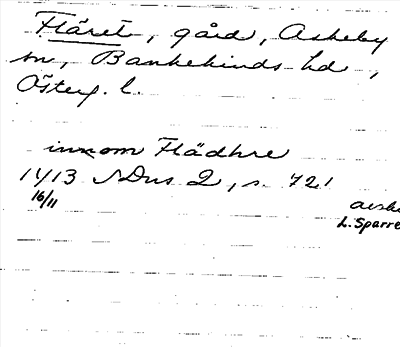 Fläret, gård, Askeby
sn, Bankekinds hd,
Österg. l.
innom Flädhre
1413 SDns 2, s. 721
16/11
avskr
L. Sparre